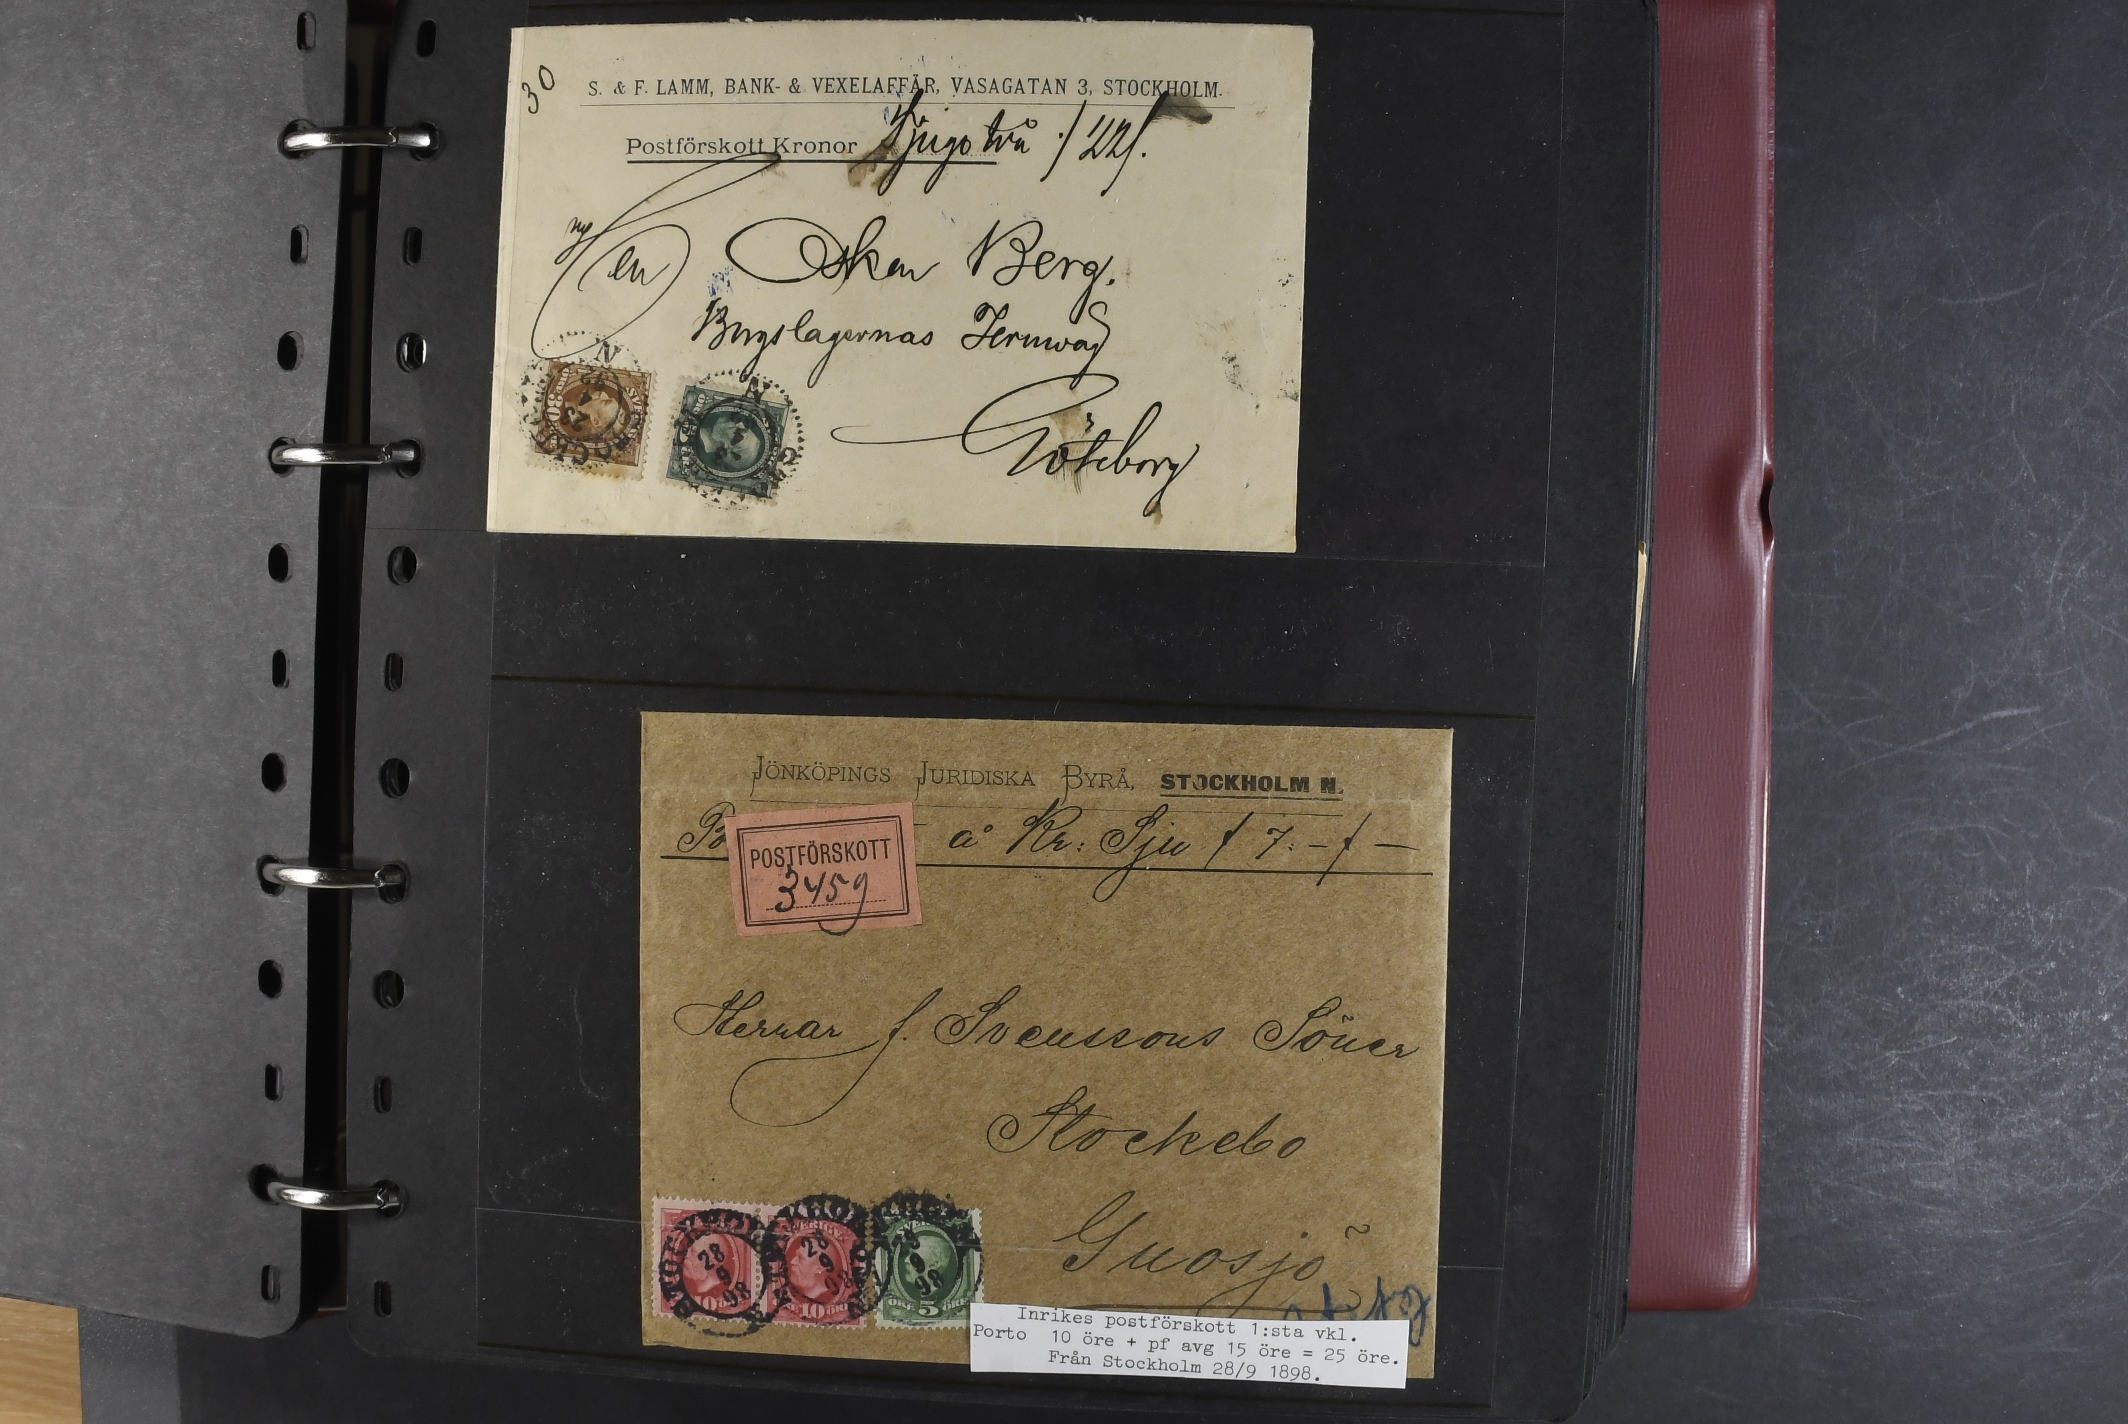 30
S. & F. LAMM, BANK- & VEXELAFFÄR, VASAGATAN 3, STOCKHOLM.
Postförskott Kronor Tjugotvå ./22/.
Oskar Berg.
Bergslagernas Jernväg
Göteborg
JÖNKÖPINGS JURIDISKA BYRÅ, STOCKHOLM N.
à Kr: Sju / 7: - / -
POSTFÖRSKOTT
3459
Herrar J. Svenssons Söner
Stockebo
Gnosjö
28 9 98
28 9 98
28 9 98
10 ÖRE
10 ÖRE
ÖRE 5 ÖRE
Inrikes postförskott 1:sta vkl.
Porto 10 öre + pf avg 15 öre = 25 öre.
Från Stockholm 28/9 1898.